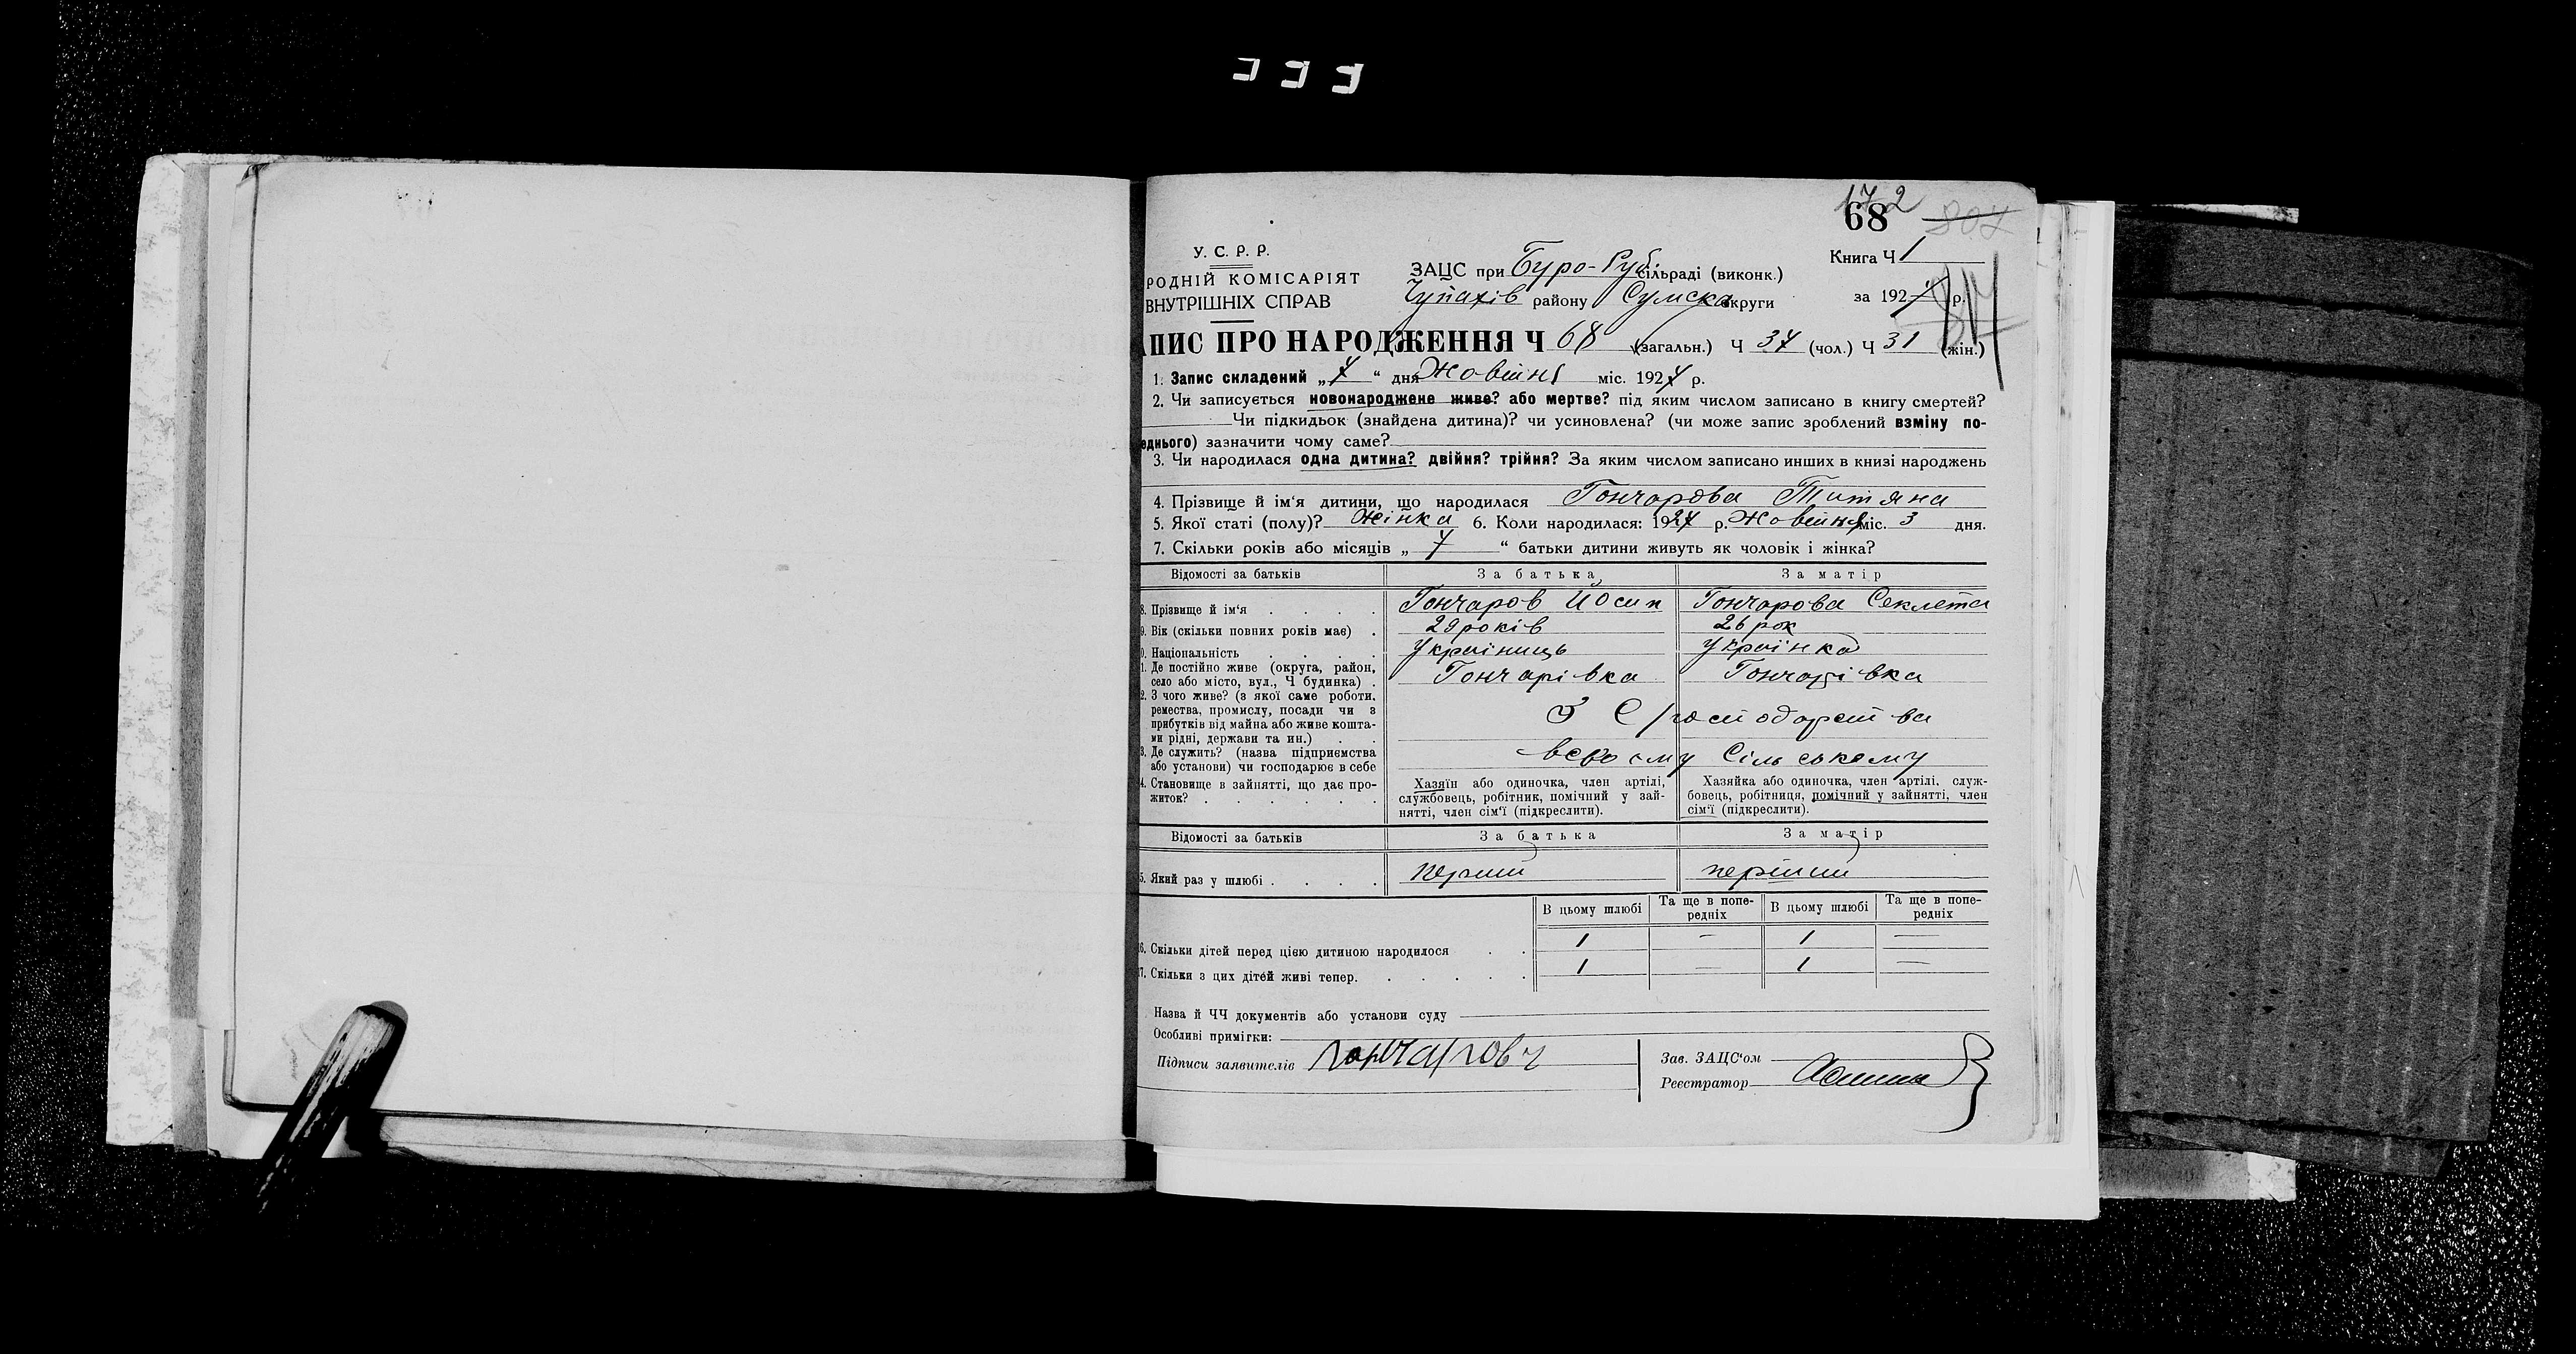 172
68 807
У. С. Р. Р.
РОДНІЙ КОМІСАРІЯТ
ВНУТРІШНІХ СПРАВ
Книга Ч 1
ЗАЦС при Буро-Руб. сільраді (виконк.)
Чупахів району Сумска округи за 1927 р.
ПИС ПРО НАРОДЖЕННЯ Ч 68 (загальн.) Ч 37 (чол.) Ч 31 (жін.)
1. Запис складений „7“ дня Жовтня міс. 1927 р.
2. Чи записується новонароджене живе? або мертве? під яким числом записано в книгу смертей?
Чи підкидьок (знайдена дитина)? чи усиновлена? (чи може запис зроблений взміну по-
еднього) зазначити чому саме?
3. Чи народилася одна дитина? двійня? трійня? За яким числом записано инших в книзі народжень
4. Прізвище й ім‘я дитини, що народилася Гончарова Титяна
5. Якої статі (полу)? Жінка 6. Коли народилася: 1927 р. Жовтня міс. 3 дня.
7. Скільки років або місяців „7“ батьки дитини живуть як чоловік і жінка?
Відомості за батьків За батька За матір
8. Прізвище й ім‘я Гончаров Йосип Гончарова Секлета
9. Вік (скільки повних років має) 29 років 26 рок
0. Національність Україниць Українка
1. Де постійно живе (округа, район,
село або місто, вул., Ч будинка) Гончарівка Гончарівка
2. З чого живе? (з якої саме роботи,
ремества, промислу, посади чи з
прибутків від майна або живе кошта-
ми рідні, держави та ин.) З С/господарства
3. Де служить? (назва підприємства
або установи) чи господарює в себе всвоєму Сільському
4. Становище в зайнятті, що дає про-
житок?
Хазяїн або одиночка, член артілі,
службовець, робітник, помічний у зай-
нятті, член сім‘ї (підкреслити).
Хазяйка або одиночка, член артілі, служ-
бовець, робітниця, помічний у зайнятті, член
сім‘ї (підкреслити).
Відомості за батьків За батька За матір
5. Який раз у шлюбі перший перший
В цьому шлюбі Та ще в попе-редніх В цьому шлюбі Та ще в попе-редніх
6. Скільки дітей перед цією дитиною народилося 1 — 1 —
7. Скільки з цих дітей живі тепер. 1 — 1 —
Назва й ЧЧ документів або установи суду
Особливі примігки:
Підписи заявителів Гончаров
Зав. ЗАЦС‘ом
Реєстратор